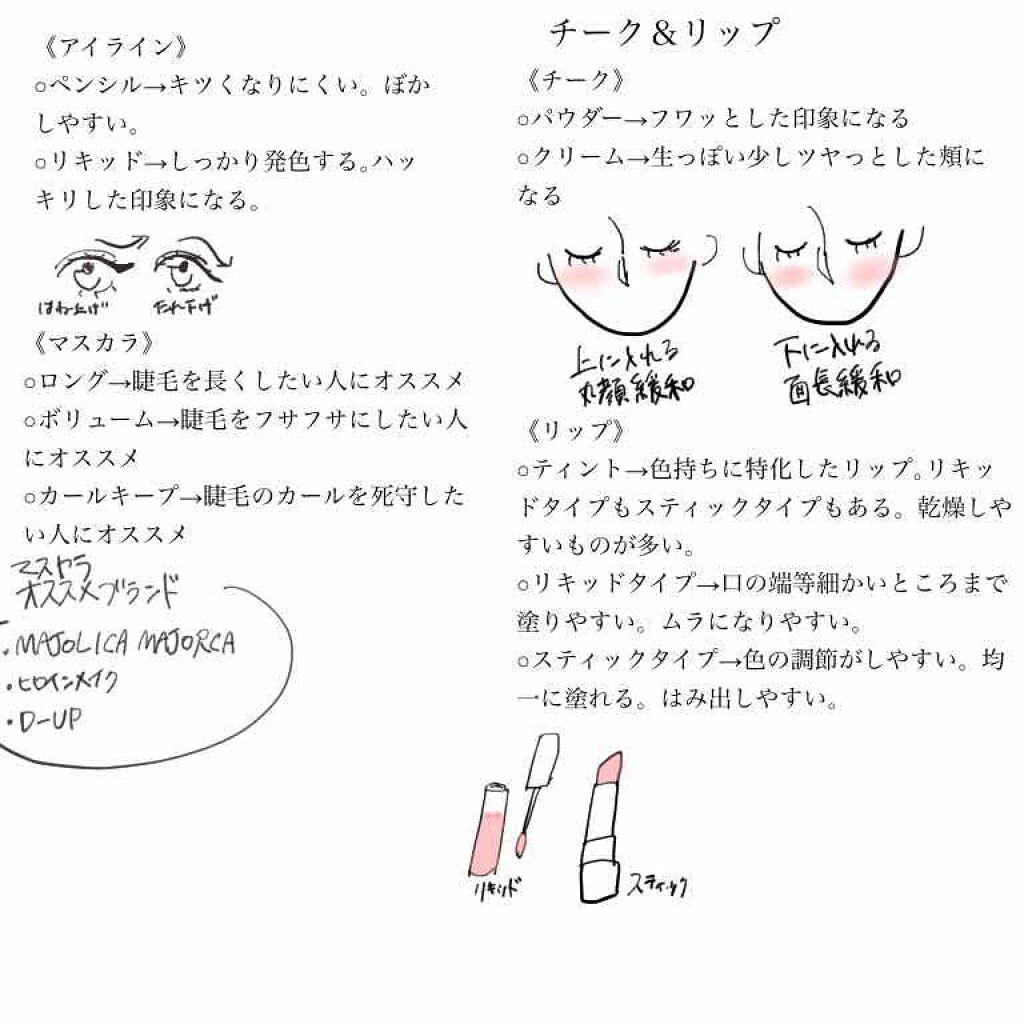 《アイライン》
○ペンシル→キツくなりにくい。ぼか
しやすい。
○リキッド→しっかり発色する。ハッ
キリした印象になる。
はね上げ
たれ下げ
《マスカラ》
○ロング→睫毛を長くしたい人にオススメ
○ボリューム→睫毛をフサフサにしたい人
にオススメ
○カールキープ→睫毛のカールを死守した
い人にオススメ
マスカラ
オススメブランド
・MAJOLICA MAJORCA
・ヒロインメイク
・D-UP
チーク&リップ
《チーク》
○パウダー→フワッとした印象になる
○クリーム→生っぽい少しツヤっとした頬に
なる
上に入れる
丸顔緩和
下に入れる
面長緩和
《リップ》
○ティント→色持ちに特化したリップ。リキッ
ドタイプもスティックタイプもある。乾燥しや
すいものが多い。
○リキッドタイプ→口の端等細かいところまで
塗りやすい。ムラになりやすい。
○スティックタイプ→色の調節がしやすい。均
一に塗れる。はみ出しやすい。
リキッド
スティック